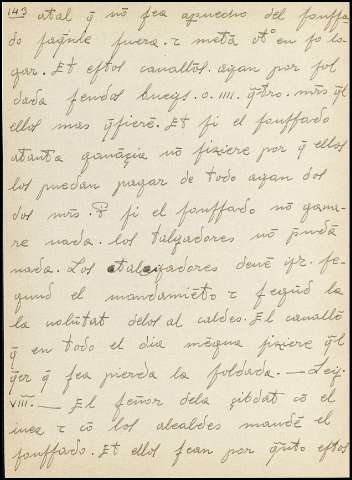 143 atal q̄ nō sea apuecho del fonssa
do saqnle fuera. τ metā otº en so lo
gar. Et estos cavallōs. ayan por sol
dada sendos bueys. o. IIII. q̄tro. mrs q̄l
ellos mas q̄sierē. Et si el fonssado
atanta ganāçia nō fiziere por q̄ ellos
los puedan pagar de todo ayan dos
dos mrs. si el fonssado nō gana-
re nada. los talayadores nō p̄ndā
nada. Los atalayadores deuē yr. se-
gund el mandamiēto τ segūd la
la volūtat delos alcaldes. El cavallō
q̄ en todo el dia mēgua fiziere q̄l
q̄er q̄ sea pierda la soldada. — Ley.
VIII. — El señor dela çibdat cō el
iuez τ cō los alcaldes mandē el
fonssado. Et ellos sean por q̄nto estos